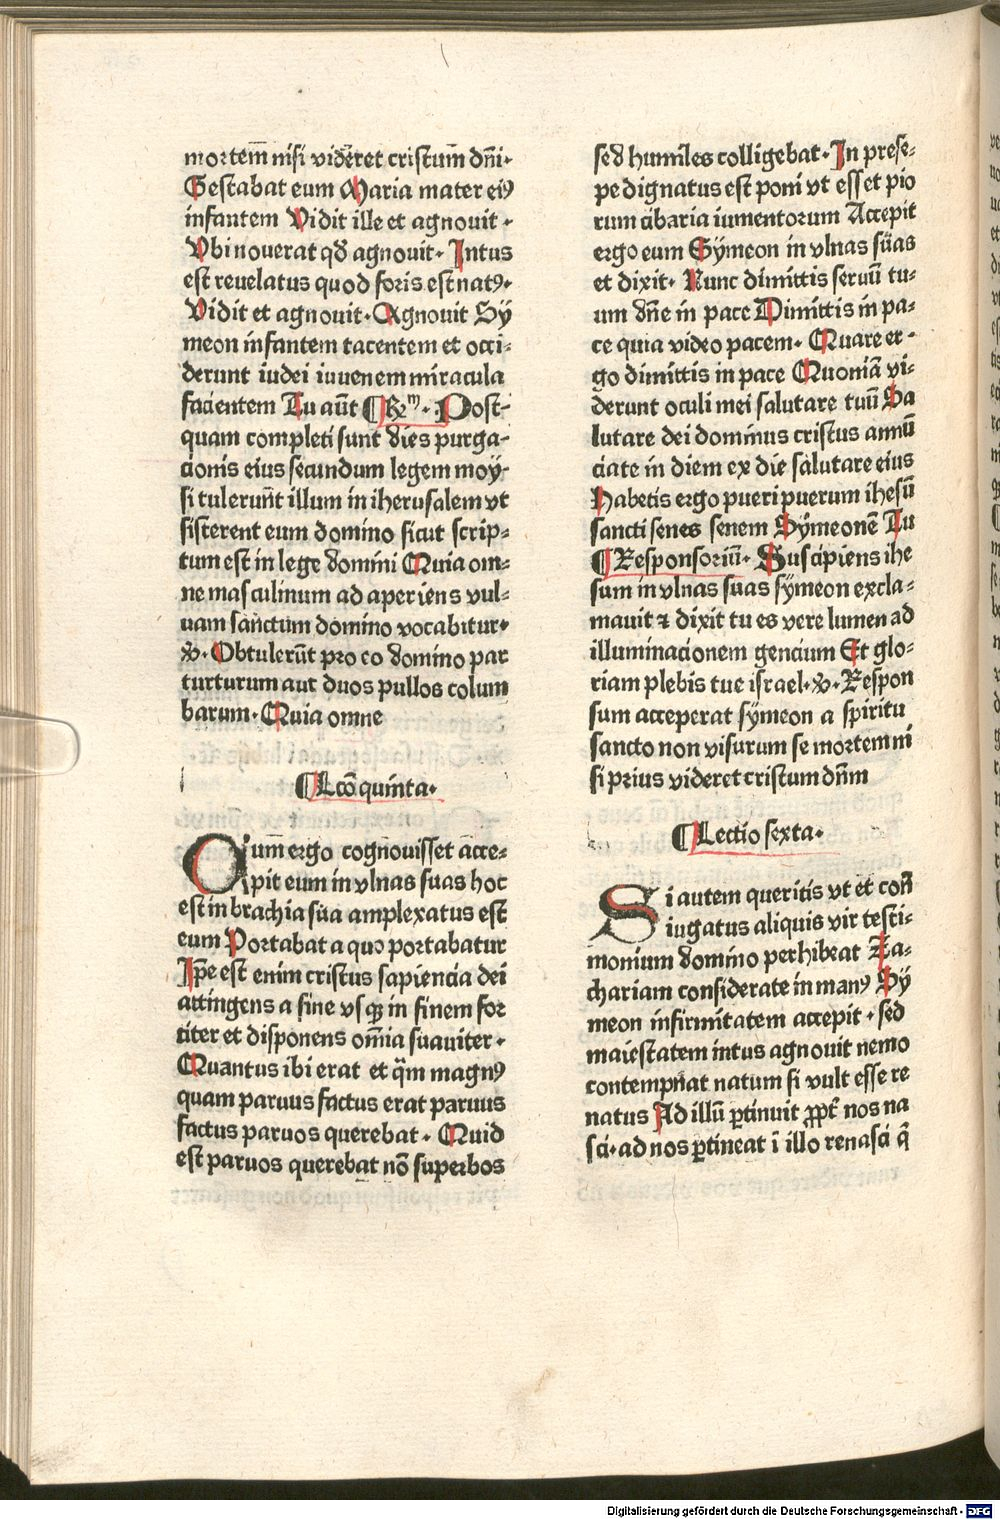 mortem̄ nisi videret cristum̄ dn̄i·
Gestabat eum Maria mater eiꝰ
infantem Vidit ille et agnouit ·
Vbi nouerat qð agnouit· Intus
est reuelatus quod foris est natꝰ·
Vidit et agnouit· Agnouit Sÿ
meon infantem tacentem et occi⸗
derunt iudei iuuenem miracula
facientem Tu aūt ¶ Rm· Post⸗
quam completi sunt dies purga⸗
cionis eius secundum legem moÿ⸗
si tulerun̄t illum in iherusalem vt
sisterent eum domino sicut scrip⸗
tum est in lege domini Quia om⸗
ne masculinum ad aperiens vul⸗
uam sanctum domino vocabitur·
℣· Obtulerūt pro eo domino par
turturum aut duos pullos colum
barum· Quia omne
¶ Lcō quinta·
Cum̄ ergo cognouisset acce⸗
pit eum in vlnas suas hoc
est in brachia sua amplexatus est
eum Portabat a quo portabatur
Ip̄e est enim cristus sapiencia dei
attingens a fine vsqꝫ in finem for
titer et disponens om̄ia suauiter·
Quantus ibi erat et q̄m magnꝰ
quam paruus factus erat paruus
factus paruos querebat· Quid
est paruos querebat nō superbos
sed humiles colligebat· In prese⸗
pe dignatus est poni vt esset pio
rum cibaria iumentorum Accepit
ergo eum Sÿmeon in vlnas suas
et dixit· Nunc dimittis seruū tu⸗
um dn̄e in pace Dimittis in pa⸗
ce quia video pacem· Quare er⸗
go dimittis in pace Quoniā vi⸗
derunt oculi mei salutare tuū Sa
lutare dei dominus cristus annū
ciate in diem ex die salutare eius
Habetis ergo pueri puerum ihesū
sancti senes senem Sÿmeonē Tu
¶ Responsoriū· Suscipiens ihe
sum in vlnas suas sÿmeon excla⸗
mauit ⁊ dixit tu es vere lumen ad
illuminacionem gencium Et glo⸗
riam plebis tue israel·℣· Respon
sum acceperat sÿmeon a spiritu
sancto non visurum se mortem ni
si prius videret cristum dn̄m
¶ Lectio sexta·
Si autem queritis vt et con̄
iugatus aliquis vir testi⸗
monium domino perhibeat Za⸗
chariam considerate in manꝰ Sÿ
meon infirmitatem accepit· sed
maiestatem intus agnouit nemo
contempn̄at natum si vult esse re
natus Ad illū ꝑtinuit ꝓpt̄ nos na
sci· ad nos ꝑtineat ī illo renasci q̄
Digitalisierung gefördert durch die Deutsche Forschungsgemeinschaft - DFG